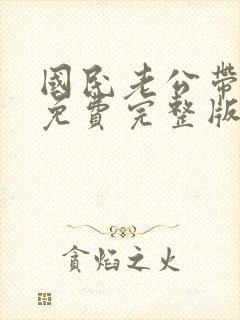 國民老公帶
免費完整版
貪焰之火